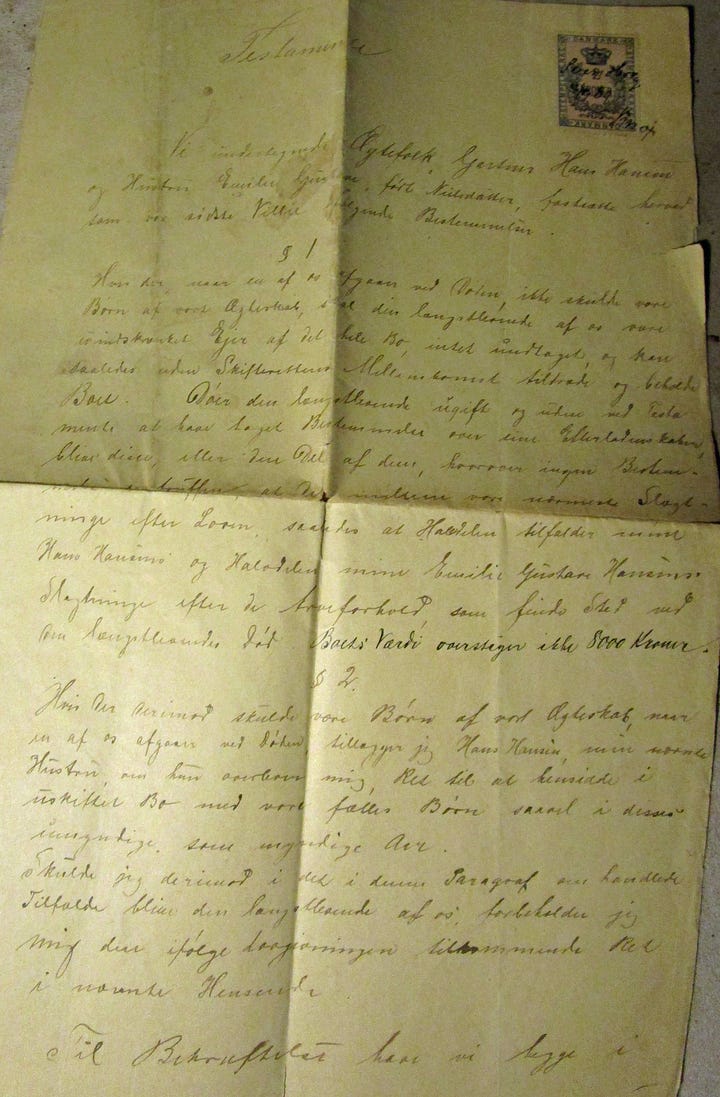 Testamente
DANMARK
Vi undertegnede Ægtefolk, Gartner Hans Hansen
og Hustru Emilie Gustave, født, fastsætte herved
som vor sidste Villie følgende Bestemmelser.
§ 1
Hvis der, naar en af os afgaar ved Døden, ikke skulde være
Børn af vort Ægteskab, skal den længstlevende af os være
uindskrænket Ejer af det hele Bo, intet undtaget, og kan
saaledes uden Skifterettens Mellemkomst tiltræde og beholde
Boet. Dør den længstlevende ugift og uden ved Testa
mente at have taget Bestemmelse over sine Efterladenskaber,
blive disse, eller den Del af dem, hvorover ingen Bestem-
truffen, at dele mellem vore nærmeste Slægt-
ninge efter Loven, saaledes at Halvdelen tilfalder mine
Hans Hansens og Halvdelen mine Emilie Gustave Hansens
Slægtninge efter de Arveforhold, som finde Sted ved
den længstlevendes Død. Boets Værdi overstiger ikke 8000 Kroner.
§ 2.
Hvis der derimod skulde være Børn af vort Ægteskab, naar
en af os afgaar ved Døden, tillægger jeg Hans Hansen, min nævnte
Hustru, om hun overlever mig, Ret til at hensidde i
uskiftet Bo med vore fælles Børn saavel i deres
umyndige, som myndige Aar.
Skulde jeg derimod i det i denne Paragraf omhandlede
Tilfælde blive den længstlevende af os, forbeholder jeg
mig den ifølge Lovgivningen tilkommende Ret
i nævnte Henseende
Til Bekræftelse have vi begge i